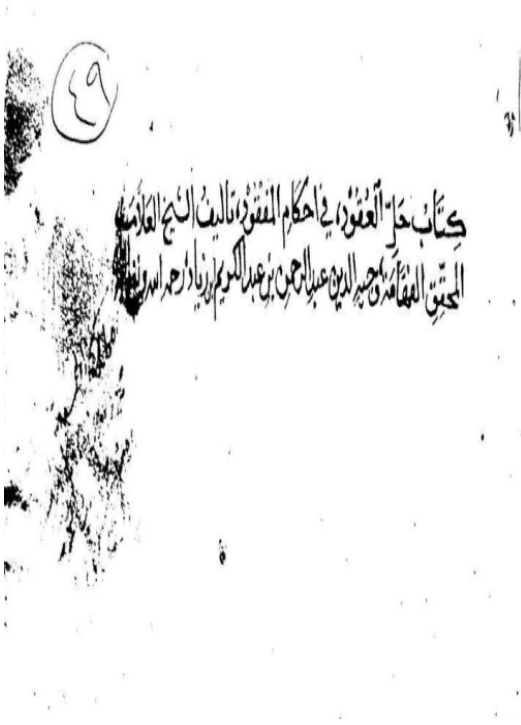 ٤٩
كِتَابُ حَلِّ العُقُوْدِ، في احكَامِ المَفْقُوْدِ، تاليفُ الشيخِ العَلَّامَة
المحقِّقِ الفَهَّامَة، وجيه الدين عبد الرحمن بن عبد الكريم بن زياد رحمه الله